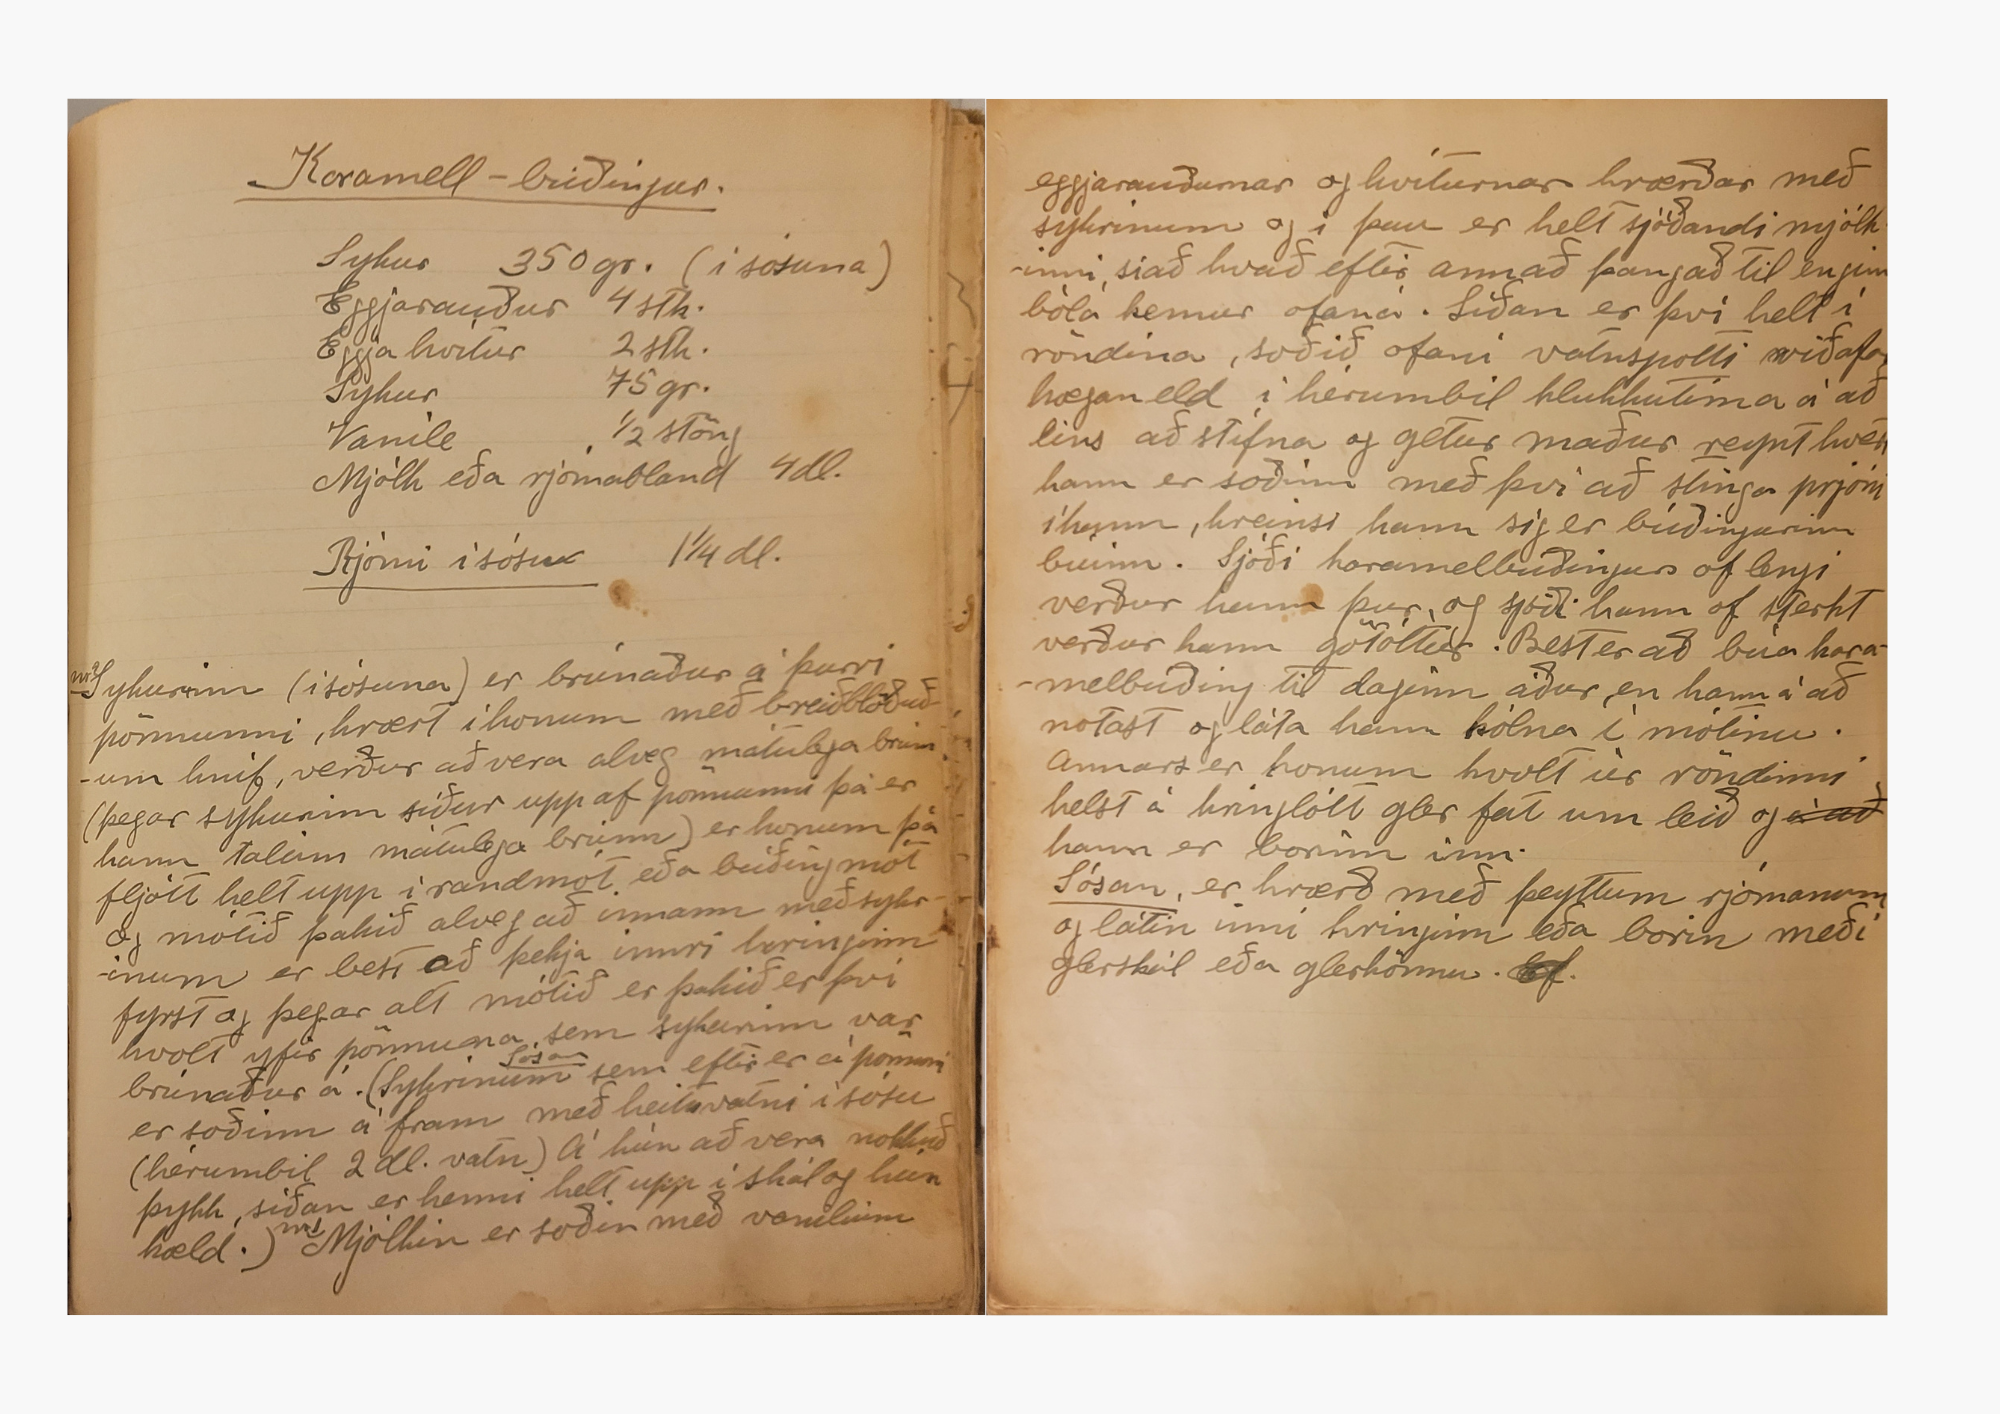 Karamell-búðingur.
Sykur 350 gr. (í sósuna)
Eggjarauður 4 stk.
Eggjahvítur 2 stk.
Sykur 75 gr.
Vanile 1/2 stöng
Mjólk eða rjómabland 4 dl.
Rjómi í sósu 1 1/4 dl.
Sykurinn (í sósuna) er brúnaður á þurri
pönnunni, hrært í honum með breiðblöðuð-
-um hníf, verður að vera alveg mátulega brún
(þegar sykurinn síður upp af pönnunni þá er
hann talinn mátulega brúnn) er honum þá
fljótt helt upp í randmót eða búðingmót
og mótið þakið alveg að innann með sykr-
-inum er best að þekja innri hringinn
fyrst og þegar alt mótið er þakið er því
hvolt yfir pönnuna sem sykurinn var
brúnaður á. (Sykrinum sem eftir er á pönnuni
Sósan
er soðinn á fram með heitu vatni í sósu
(hérumbil 2 dl. vatn) Á hún að vera nokkuð
þykk, síðan er henni helt upp í skál og hún
kæld.) Mjólkin er soðin með vanilinni
eggjarauðurnar og hvíturnar hrærðar með
sykrinum og í þau er helt sjóðandi mjólk-
-inni, siað hvað eftir annað þangað til engin
bóla kemur ofaná. Síðan er því helt í
röndina, soðið ofaní vatnspotti við afar
hægan eld í hérumbil klukkutíma á að
eins að stífna og getur maður reynt hvert
hann er soðinn með því að stinga prjóni
í hann, hreinsi hann sig er búðingurinn
búinn. Sjóði karamelbúðingurs of lengi
verður hann þur, og sjóði hann of sterkt
verður hann götóttur. Best er að búa kara-
-melbúðing til daginn áður en hann á að
notast og láta hann kólna í mótinu.
Annars er honum hvolt úr röndinni
helst á hringlótt gler fat um leið og á að
hann er borinn inn.
Sósan, er hrærð með þeyttum rjómanum
og látin inni hringinn eða borin með í
glerskál eða glerkönnu. Ef.